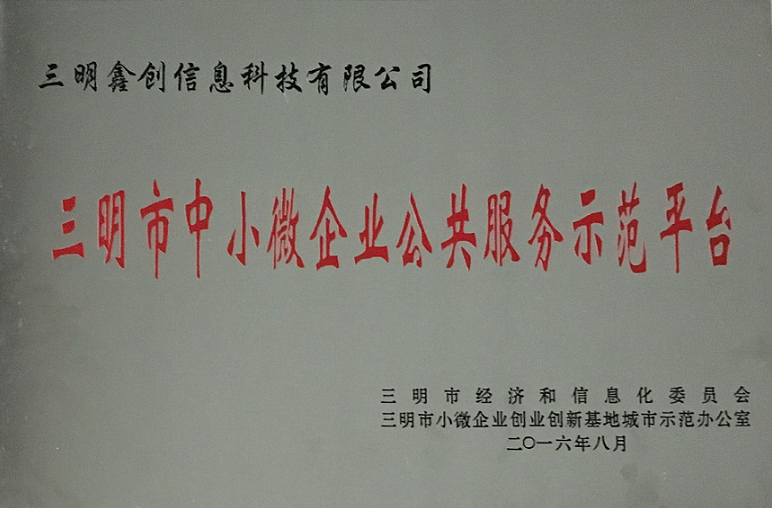 三明鑫创信息科技有限公司
三明市中小微企业公共服务示范平台
三明市经济和信息化委员会
三明市小微企业创业创新基地城市示范办公室
二〇一六年八月